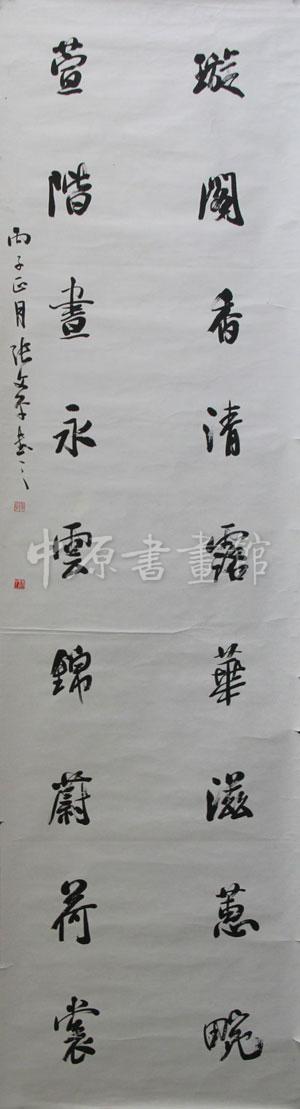 璇閣香清露華滋蕙畹
萱階晝永雲錦蔚荷裳
丙子正月張文平書
中原書畫館